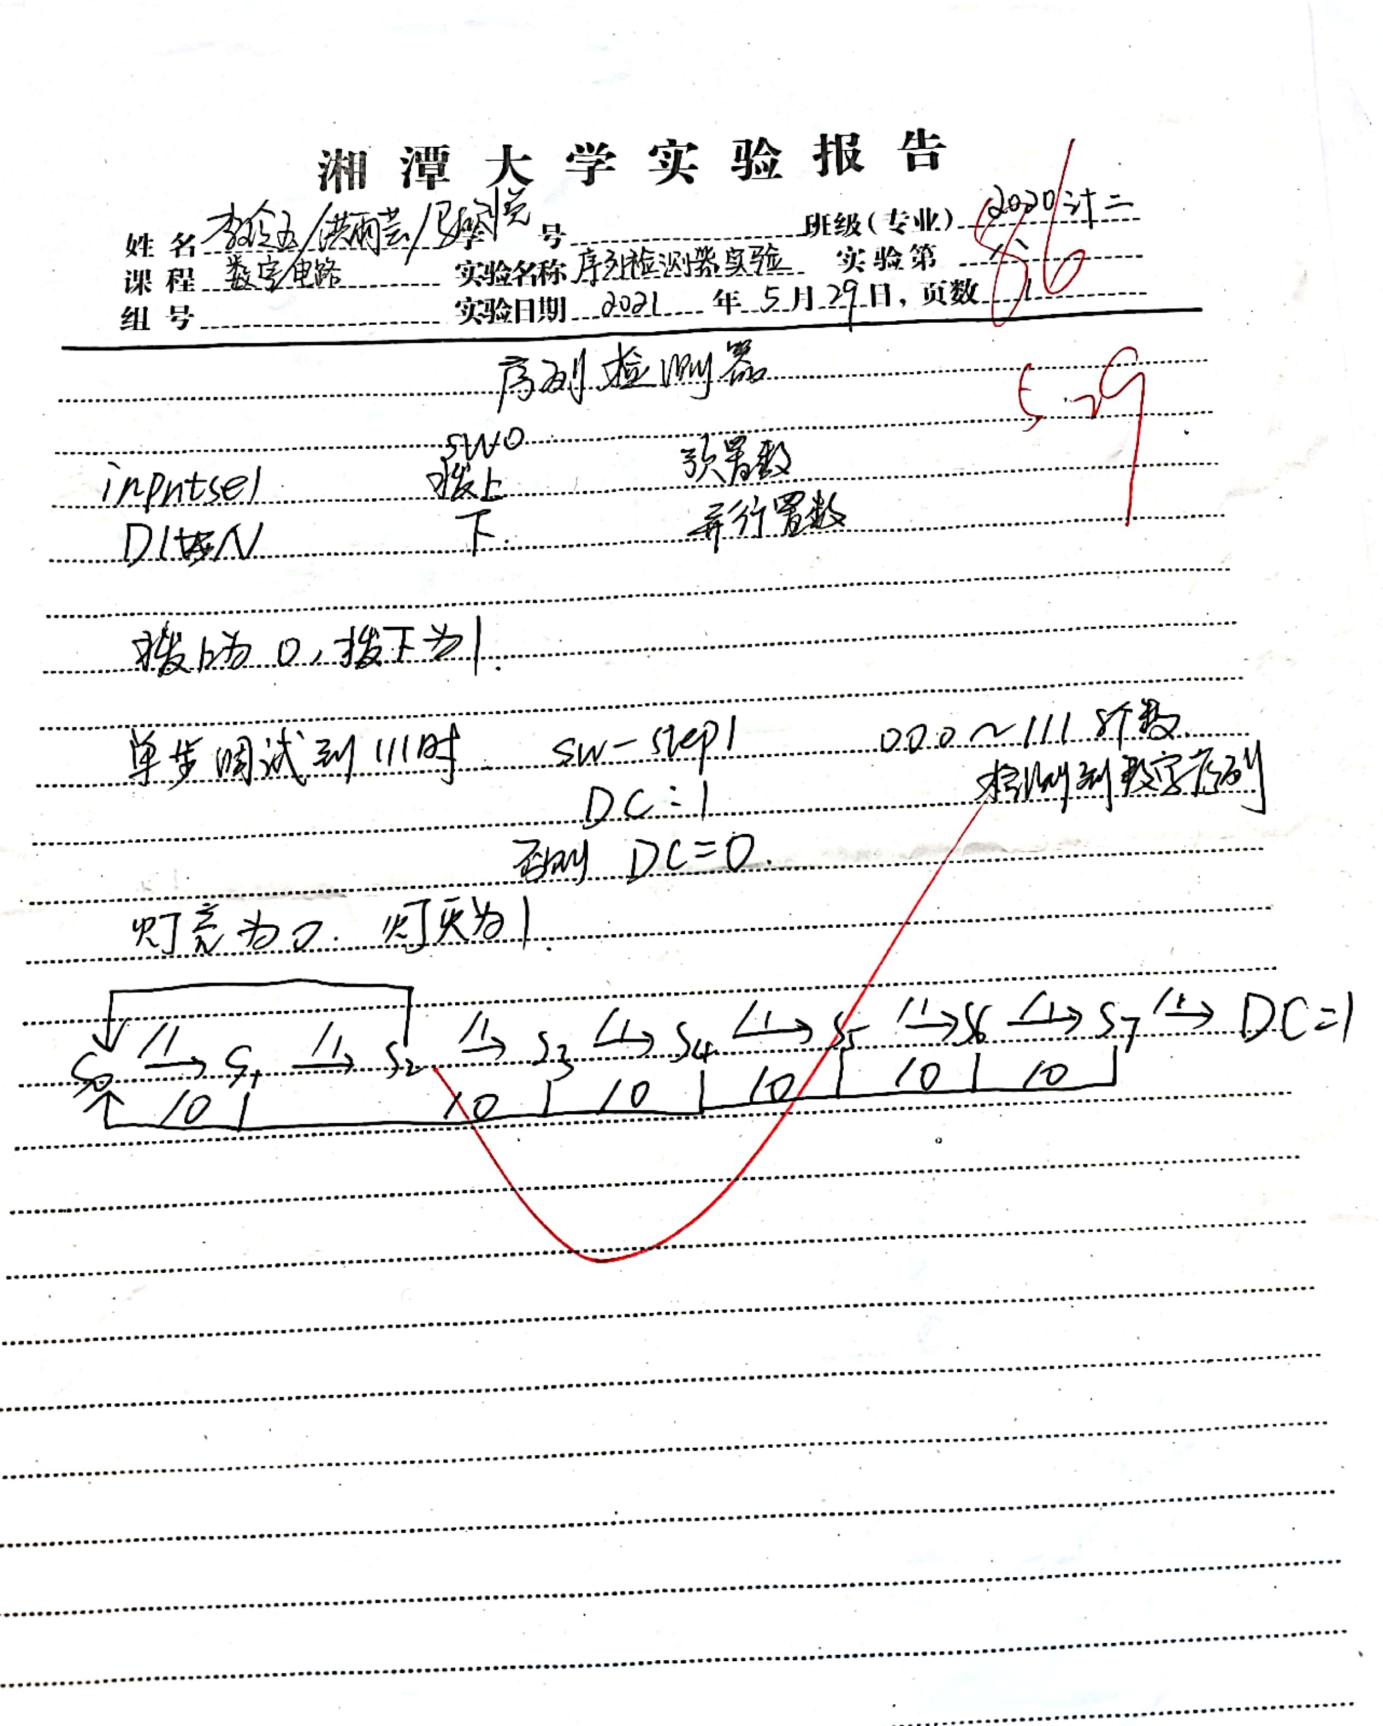 湘潭大学实验报告
姓名 学号 班级(专业) 2020计二
课程 数字电路 实验名称 序列检测器实验 实验第 六
组号 实验日期 2021 年 5 月 29 日, 页数 1
86
序列检测器
5.29
SW0
inputsel 拨上 预置数
下. 并行置数
拨上为 0, 拨下为1.
单步调试到 111时 sw-step1 000~111 8个数.
DC=1 检测到数字序列
否则 DC=0.
灯亮为0. 灯灭为1.
S0 /1→ S1 /1→ S2 /1→ S3 /1→ S4 /1→ S5 /1→ S6 /1→ S7 /1→ DC=1
/0 /0 /0 /0 /0 /0